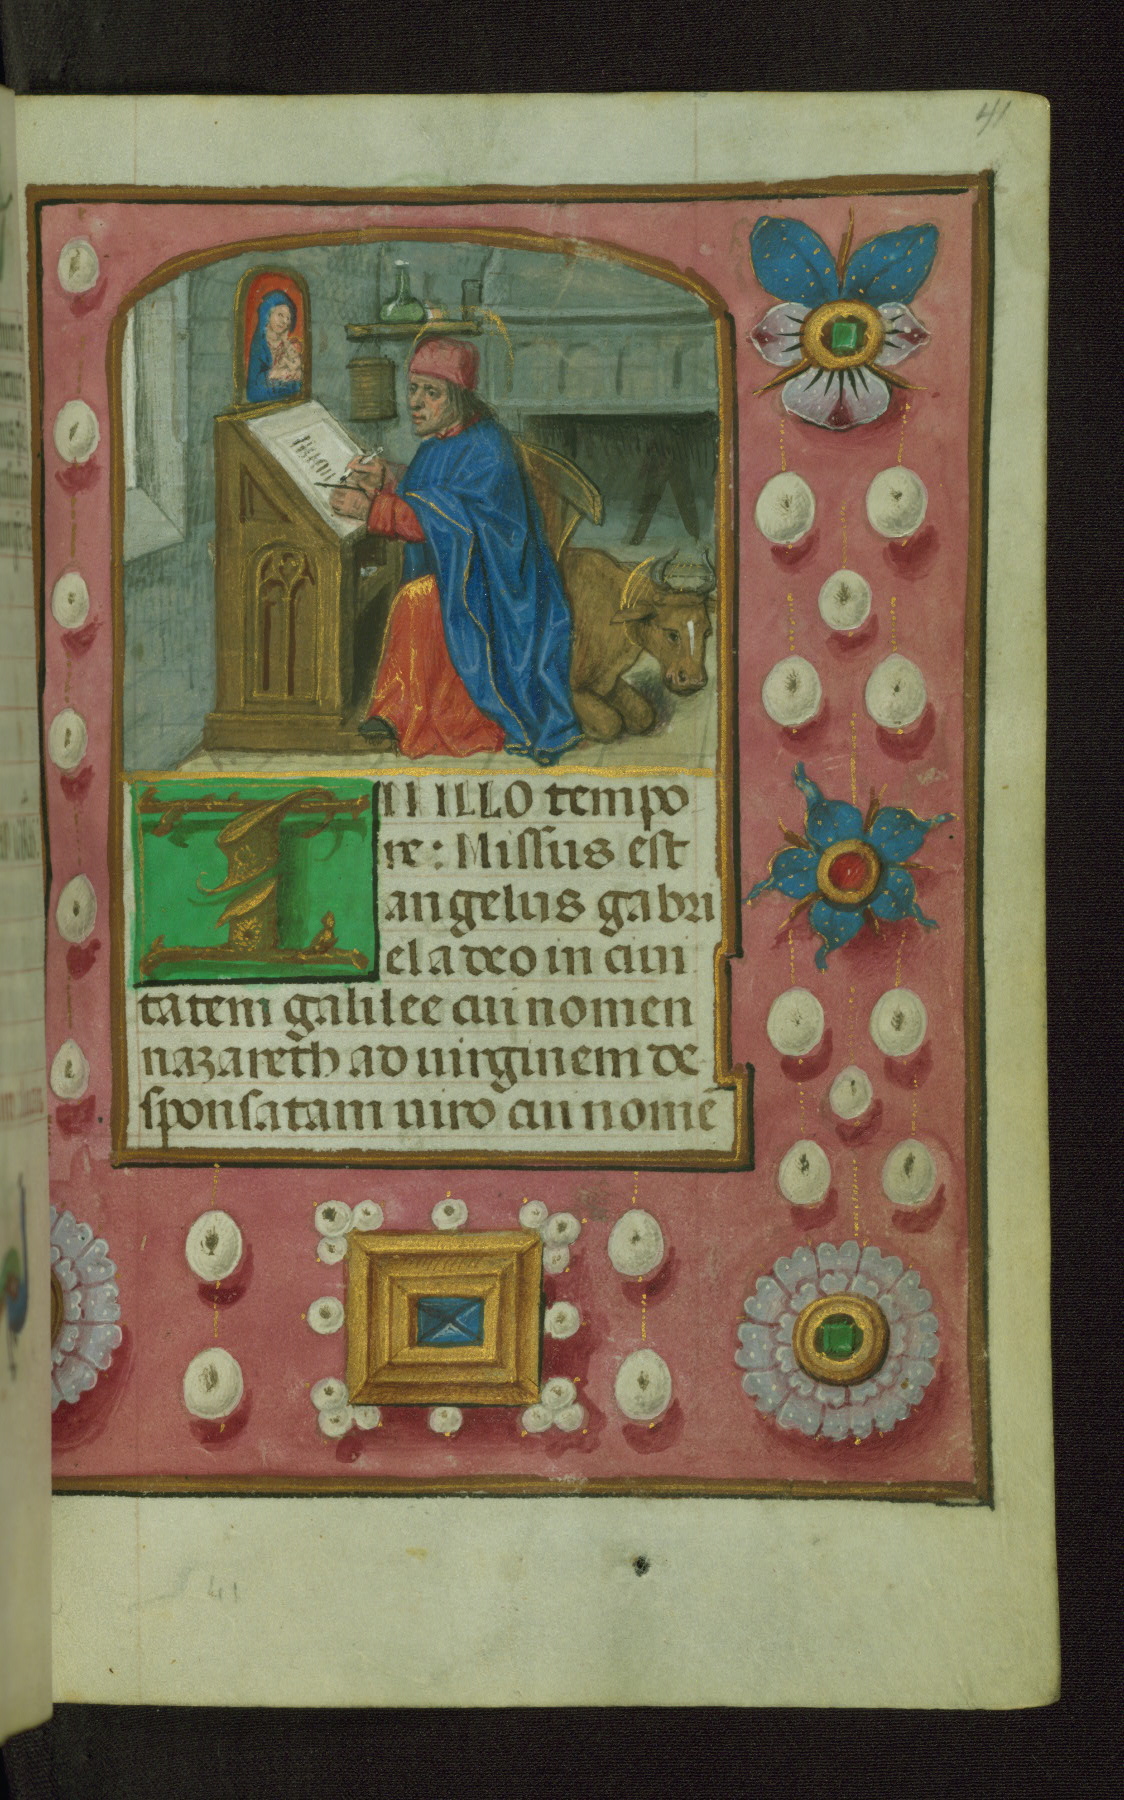 41
IN ILLO tempo
re: Missus est
angelus gabri
el a deo in ciui
tatem galilee cui nomen
nazareth ad uirginem de
sponsatam uiro cui nomē
41